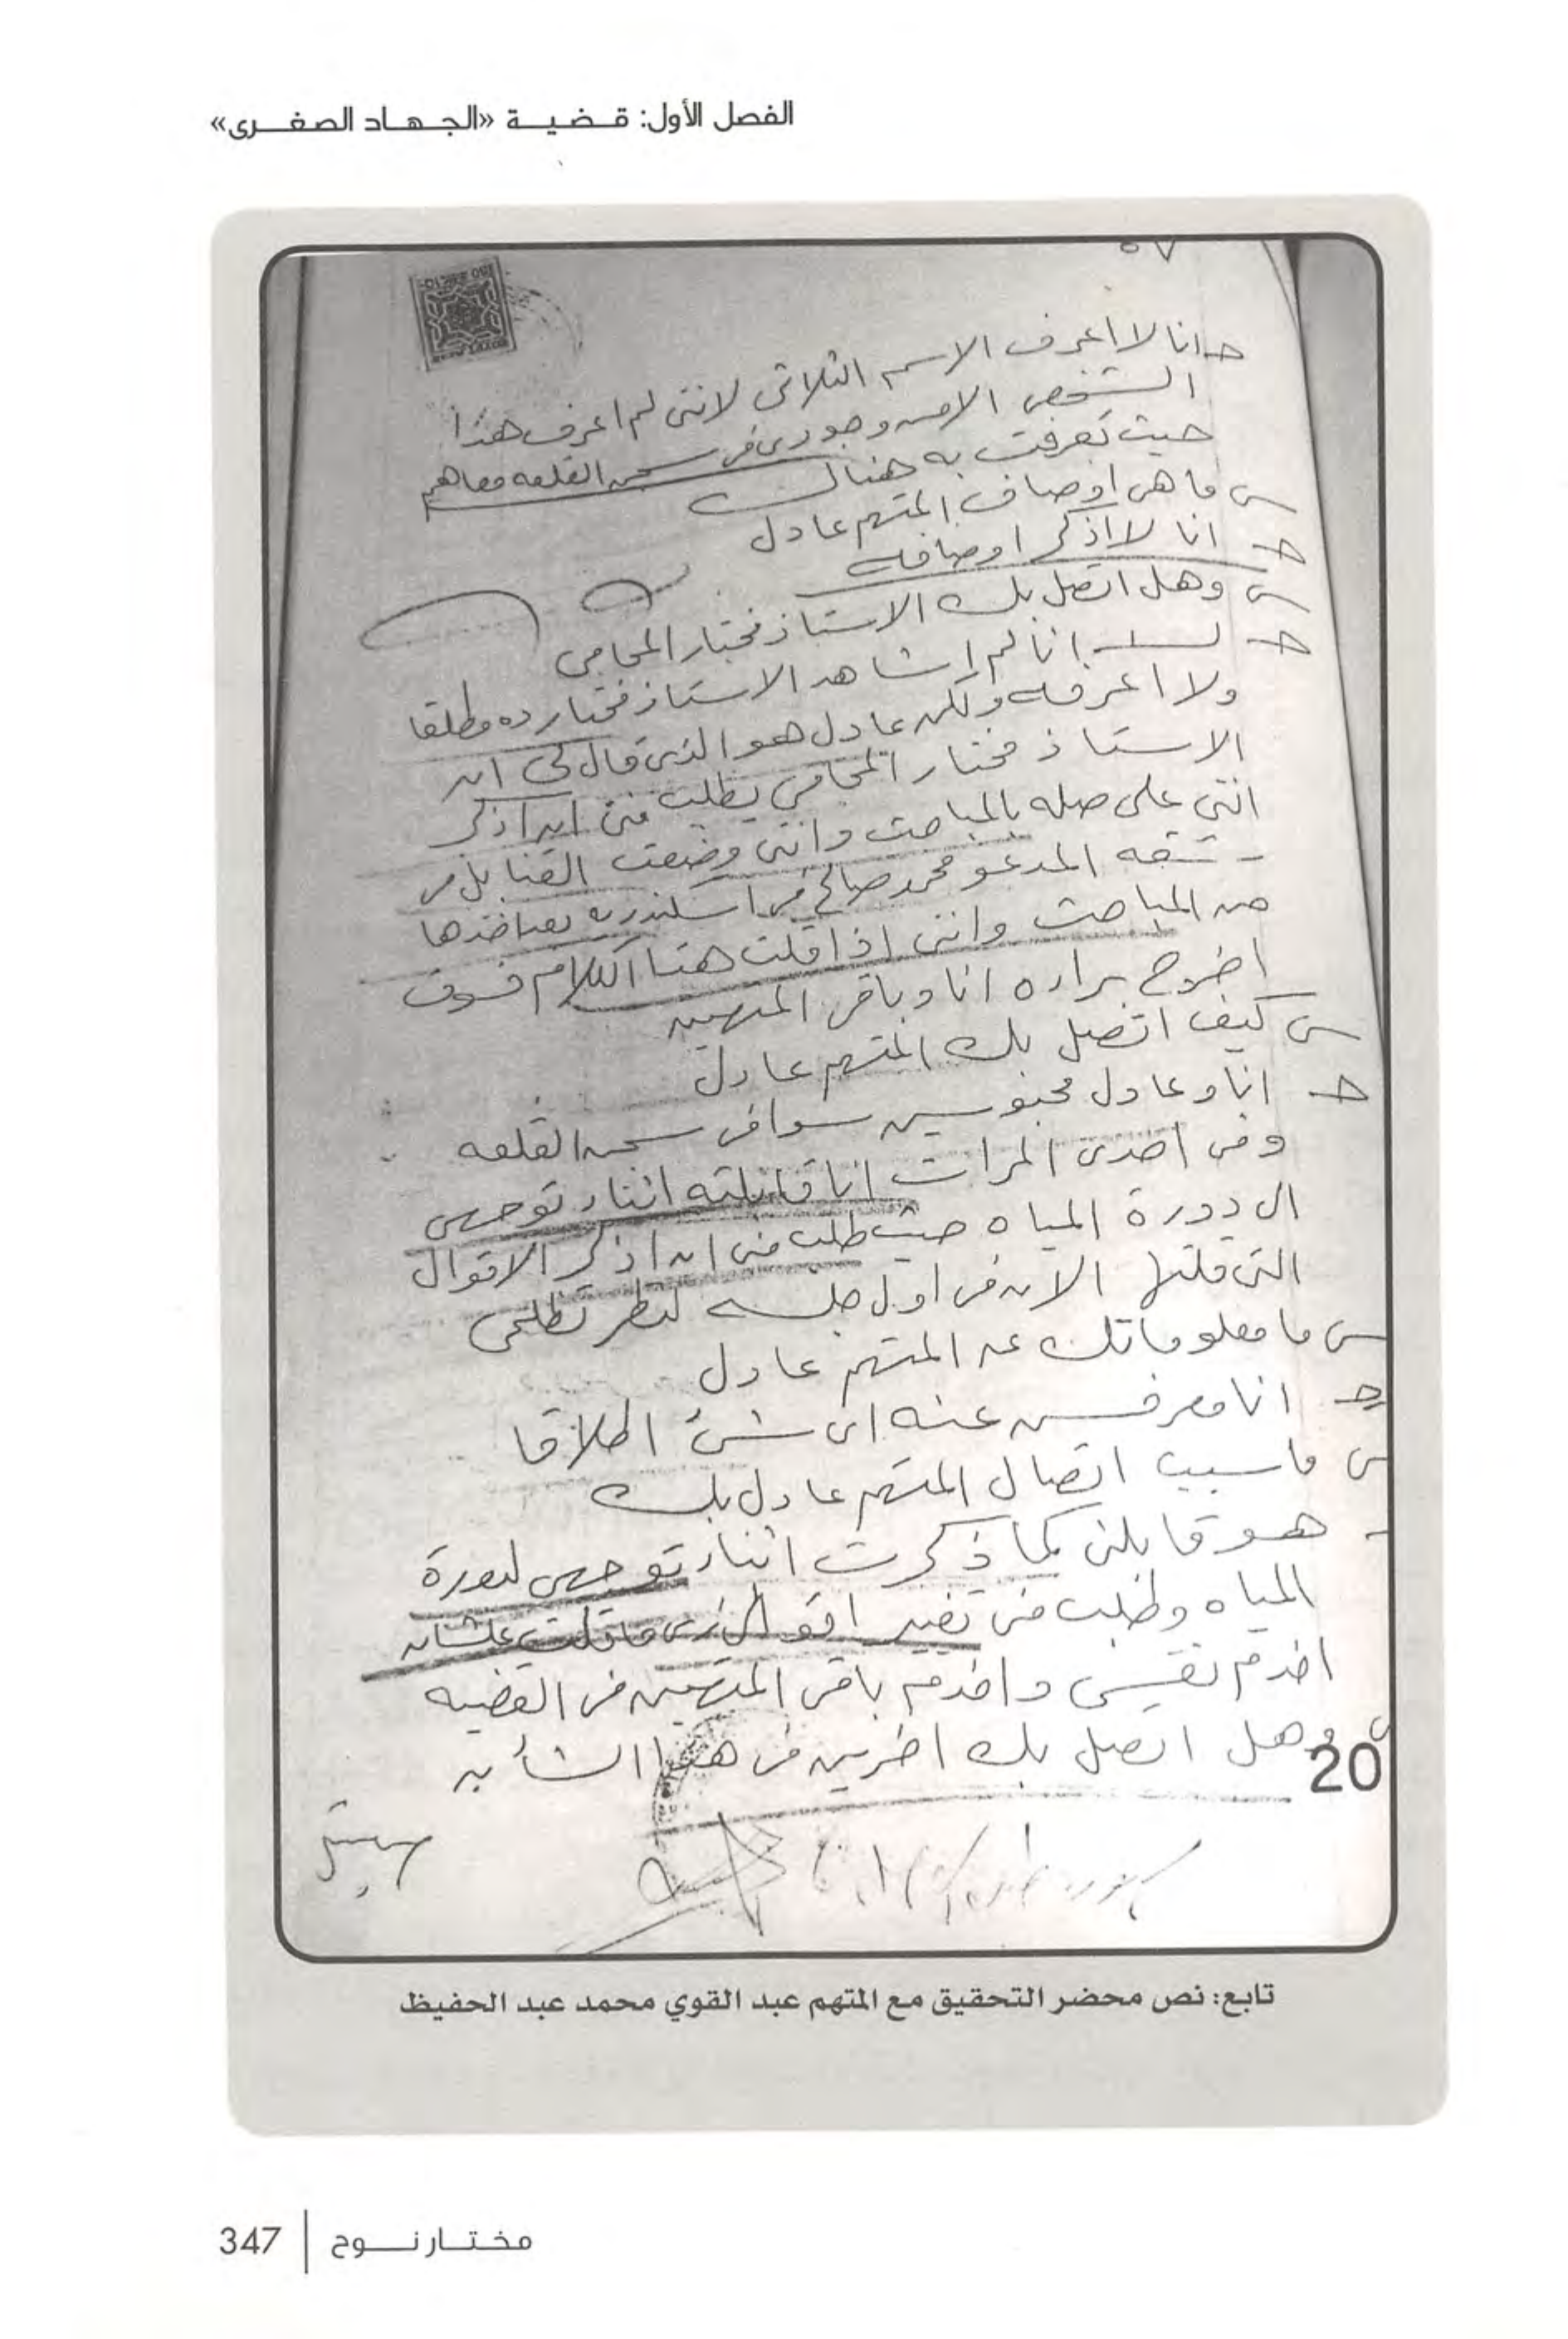 الفصل الأول: قضية «الجهاد الصغرى»
٥٧
ج انا لا اعرف الاسم الثلاثى لاننى لم اعرف هذا
الشخص الا من وجودى فى سجن القلعه معاهم
حيث تعرفت به هناك
س ما هى اوصاف المتهم عادل
ج انا لا اذكر اوصافه
س وهل اتصل بك الاستاذ مختار المحامى
ج لا انا لم اشاهد الاستاذ مختار ده مطلقا
ولا اعرفه ولكن عادل هو الذى قال لى ان
الاستاذ مختار المحامى يطلب منى ان اذكر
اننى على صله بالمباحث واننى وضعت القنابل فى
شقه المدعو محمد صالح فى اسكندريه بعد اخذها
من المباحث واننى اذا قلت هذا الكلام فسوف
اخرج براءه انا وباقى المتهمين
س كيف اتصل بك المتهم عادل
ج انا وعادل محبوسين سوا فى سجن القلعه
وفى احدى المرات انا قابلته اثناء توجهى
الى دورة المياه حيث طلب منى ان اذكر الاقوال
التى قلتها الان فى اول جلسه لنظر تظلمى
س ما معلوماتك عن المتهم عادل
ج انا معرفش عنه اى شئ اطلاقا
س ما سبب اتصال المتهم عادل بك
هو قابلنى كما ذكرت اثناء توجهى لدورة
المياه وطلب منى تغيير اقوالى زى ما قلت علشان
اخدم نفسى واخدم باقى المتهمين فى القضيه
س وهل اتصل بك اخرين فى هذا الشأن
20
تابع: نص محضر التحقيق مع المتهم عبد القوي محمد عبد الحفيظ
مختار نوح | 347